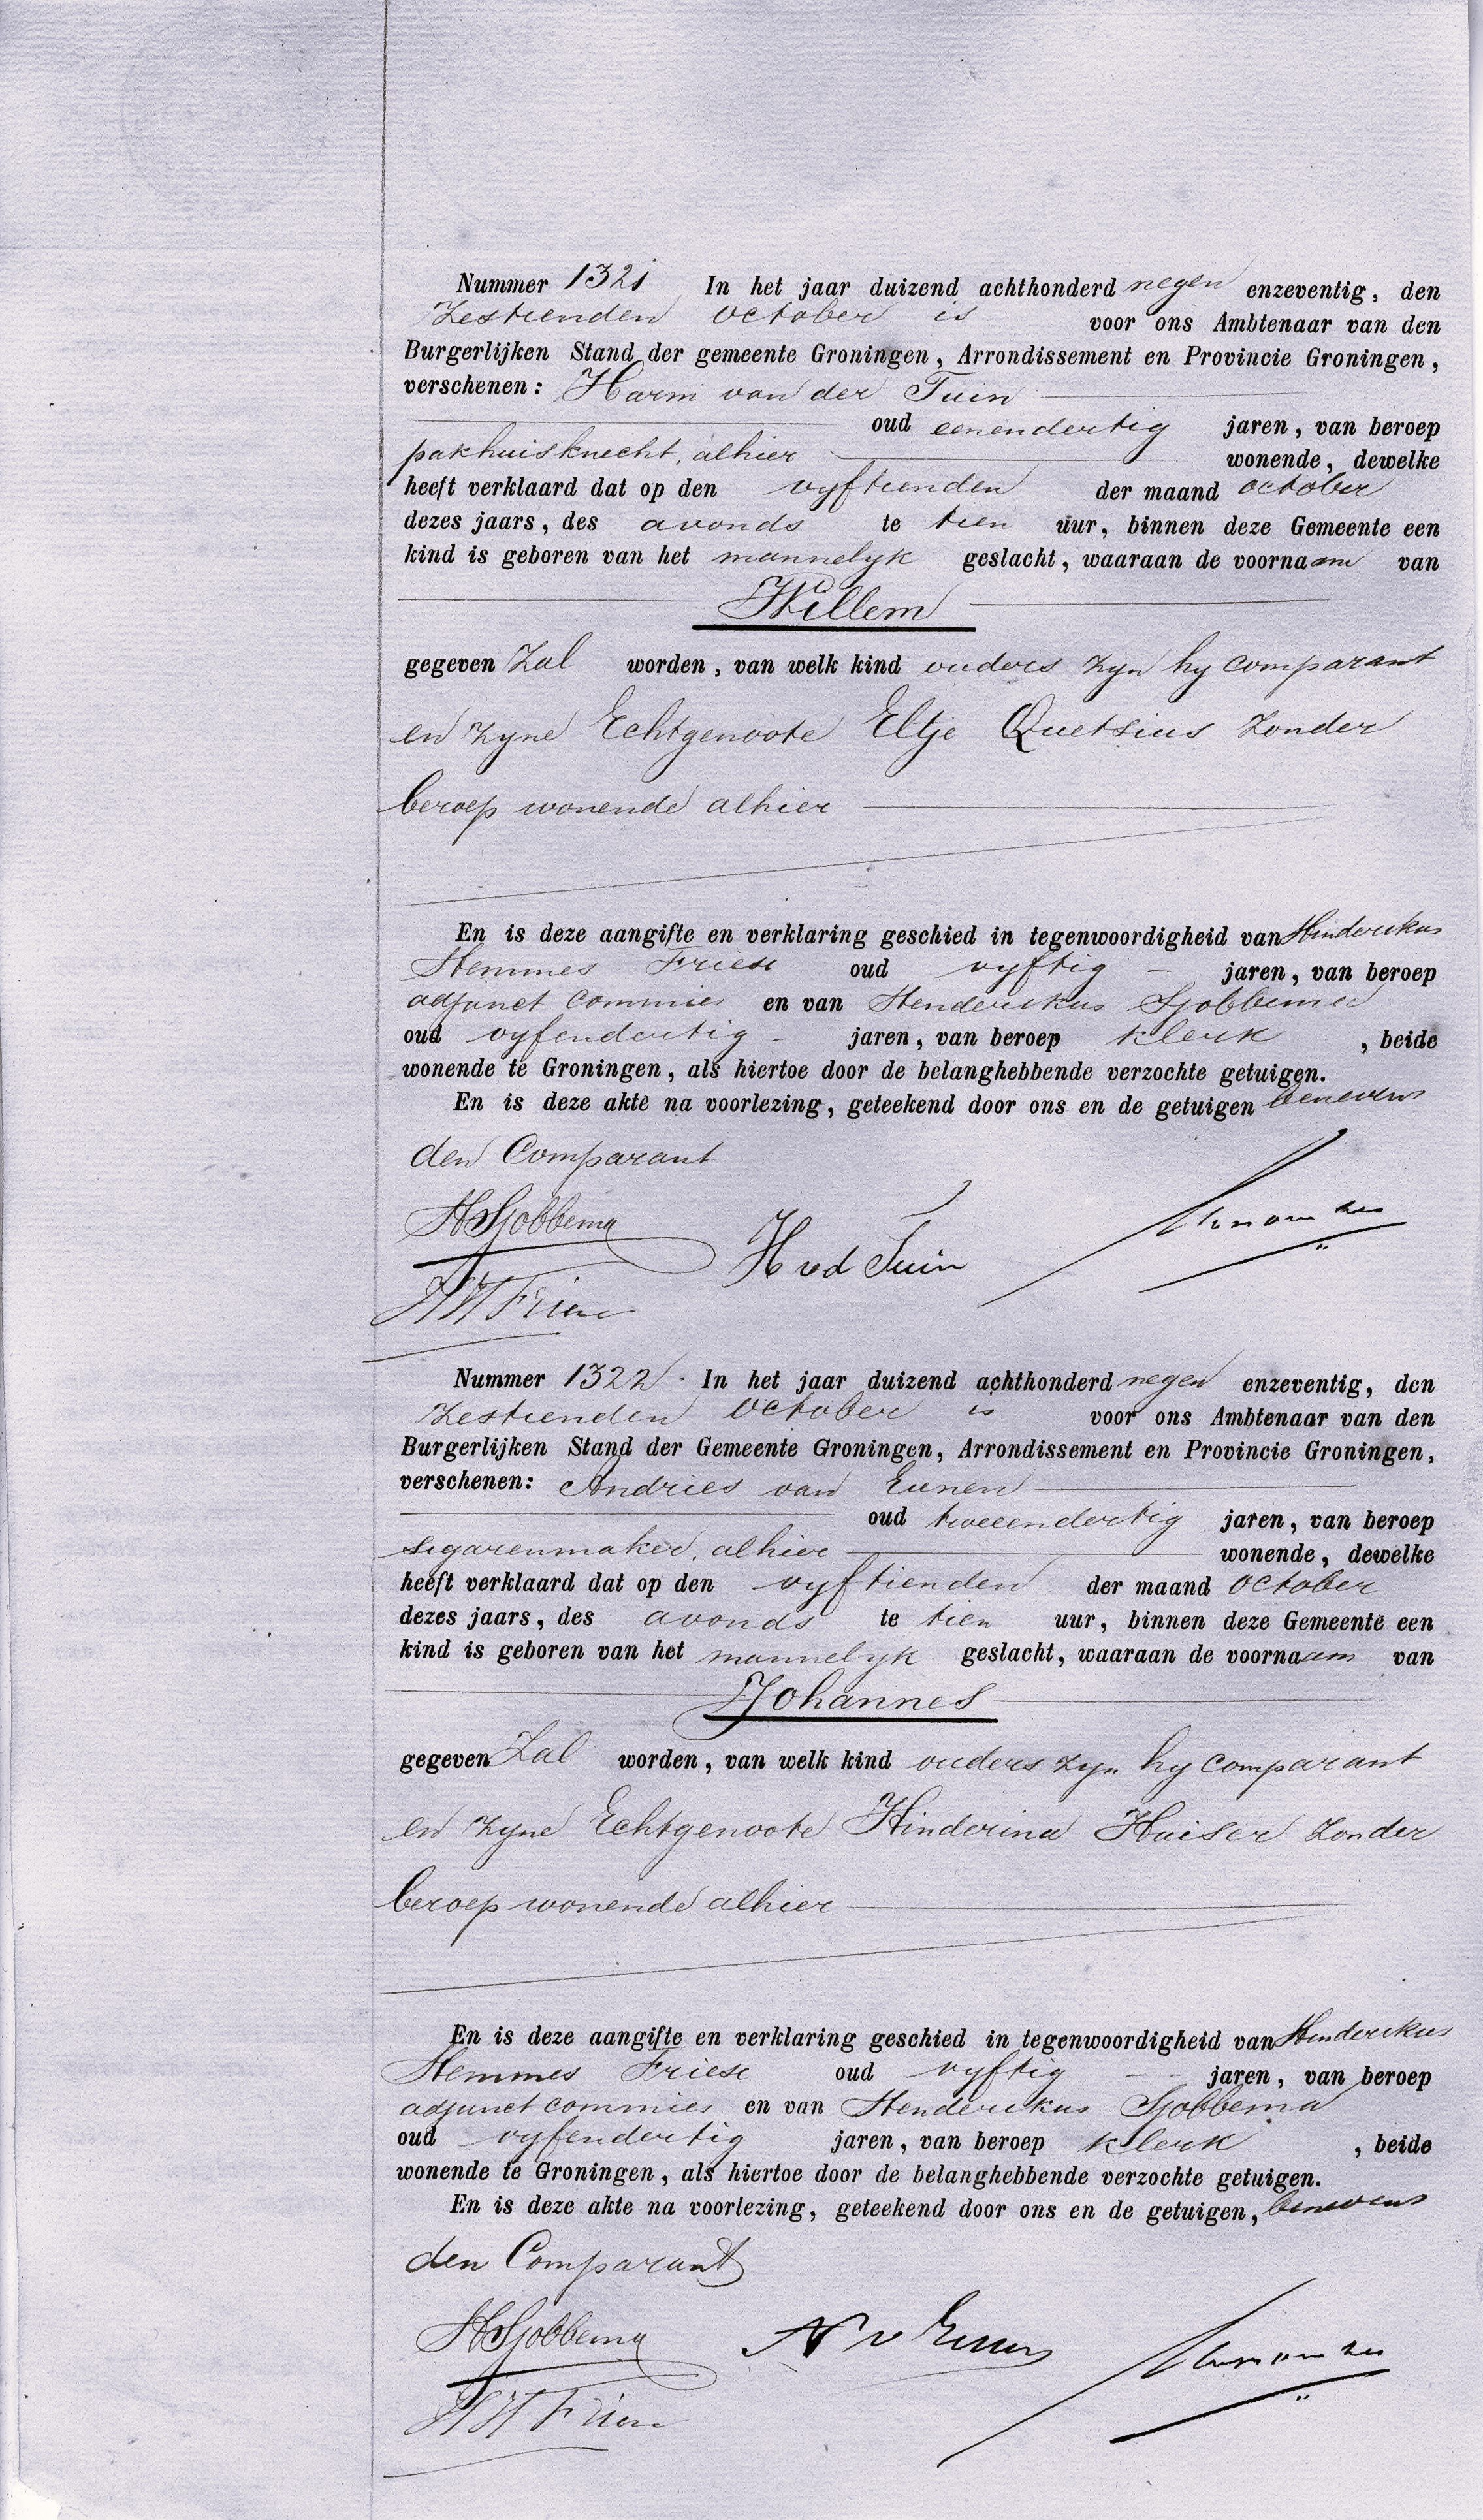 Nummer 1321 In het jaar duizend achthonderd negen enzeventig, den
Zestienden October is voor ons Ambtenaar van den
Burgerlijken Stand der gemeente Groningen, Arrondissement en Provincie Groningen,
verschenen: Harm van der Tuin
oud eenendertig jaren, van beroep
pakhuisknecht, alhier wonende, dewelke
heeft verklaard dat op den vyftienden der maand October
dezes jaars, des avonds te tien uur, binnen deze Gemeente een
kind is geboren van het mannelyk geslacht, waaraan de voornaam van
Willem
gegeven Zal worden, van welk kind ouders zyn hy comparant
en zyne Echtgenoote Eltje Quetsius Zonder
beroep wonende alhier
En is deze aangifte en verklaring geschied in tegenwoordigheid van Hinderikus
Hemmes Friese oud vyftig jaren, van beroep
adjunct commies en van Henderikus Sjobbema
oud vyfendertig jaren, van beroep klerk, beide
wonende te Groningen, als hiertoe door de belanghebbende verzochte getuigen.
En is deze akte na voorlezing, geteekend door ons en de getuigen benevens
den Comparant
HSjobbema
H vd Tuin
HHFriese
Nummer 1322. In het jaar duizend achthonderd negen enzeventig, den
Zestienden October is voor ons Ambtenaar van den
Burgerlijken Stand der Gemeente Groningen, Arrondissement en Provincie Groningen,
verschenen: Andries van Eunen
oud tweeendertig jaren, van beroep
sigarenmaker, alhier wonende, dewelke
heeft verklaard dat op den vyftienden der maand October
dezes jaars, des avonds te tien uur, binnen deze Gemeente een
kind is geboren van het mannelyk geslacht, waaraan de voornaam van
Johannes
gegeven Zal worden, van welk kind ouders zyn hy comparant
en zyne Echtgenoote Hinderina Huiser Zonder
beroep wonende alhier
En is deze aangifte en verklaring geschied in tegenwoordigheid van Hinderikus
Hemmes Friese oud vyftig jaren, van beroep
adjunct commies en van Henderikus Sjobbema
oud vyfendertig jaren, van beroep klerk, beide
wonende te Groningen, als hiertoe door de belanghebbende verzochte getuigen.
En is deze akte na voorlezing, geteekend door ons en de getuigen, benevens
den Comparant
HSjobbema
A v Eunen
HHFriese